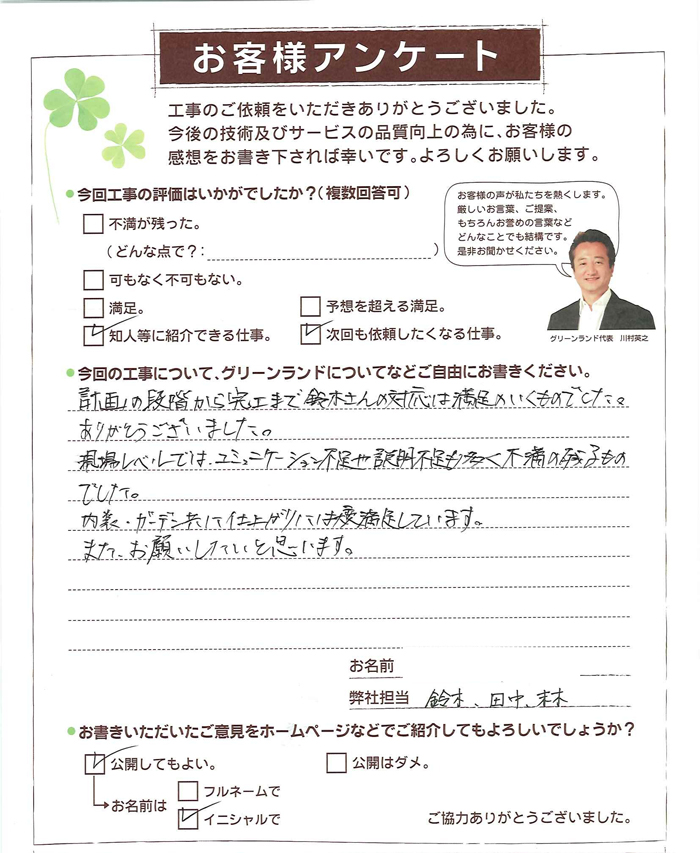 お客様アンケート
工事のご依頼をいただきありがとうございました。
今後の技術及びサービスの品質向上の為に、お客様の
感想をお書き下されば幸いです。よろしくお願いします。
今回工事の評価はいかがでしたか？（複数回答可）
不満が残った。
（どんな点で？：　）
可もなく不可もない。
満足。
予想を超える満足。
知人等に紹介できる仕事。
次回も依頼したくなる仕事。
お客様の声が私たちを熱くします。
厳しいお言葉、ご提案、
もちろんお誉めの言葉など
どんなことでも結構です。
是非お聞かせください。
グリーンランド代表　川村英之
今回の工事について、グリーンランドについてなどご自由にお書きください。
計画の段階から完工まで鈴木さんの対応は満足のいくものでした。
ありがとうございました。
現場レベルでは、コミュニケーション不足や説明不足も多く不満の残るもの
でした。
内装・ガーデン共に仕上がりには大変満足しています。
また、お願いしたいと思います。
お名前
弊社担当　鈴木、田中、末木
お書きいただいたご意見をホームページなどでご紹介してもよろしいでしょうか？
公開してもよい。
公開はダメ。
お名前は
フルネームで
イニシャルで
ご協力ありがとうございました。